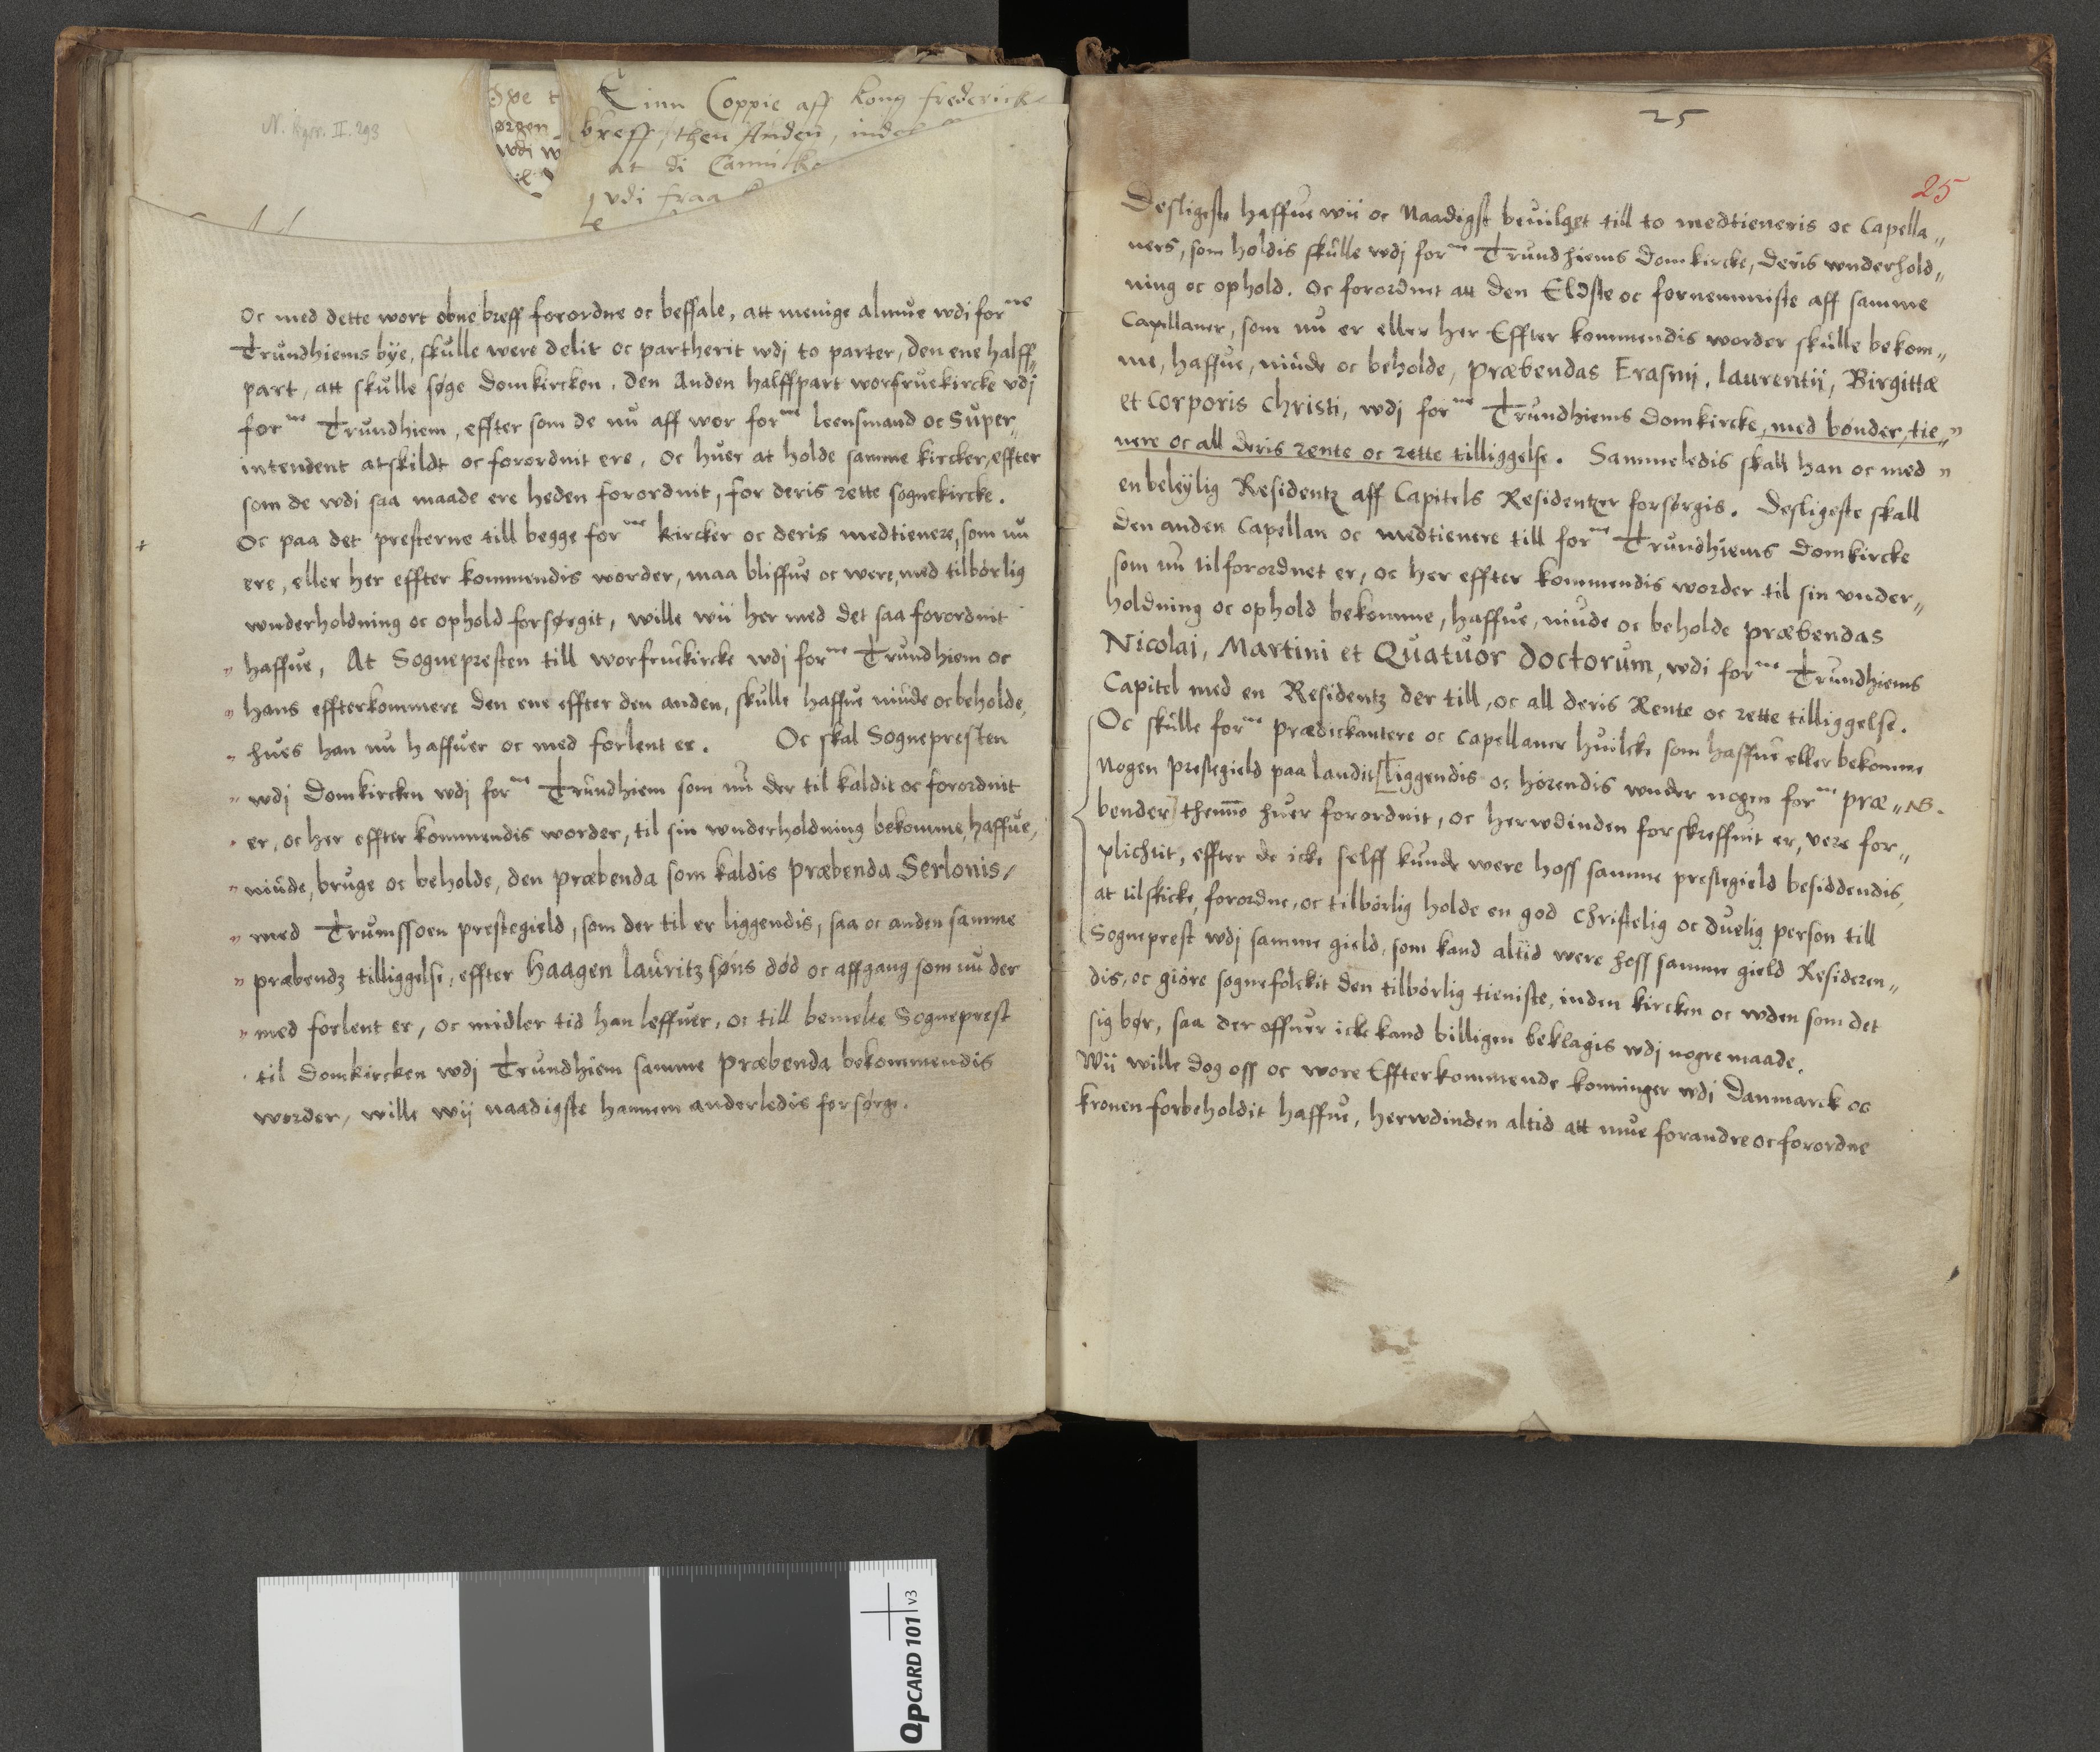 N. Rgstr. II. 293
ørgen
wdi w
Einn Coppie aff Kong Frederick
breff, then Anden,
at di Cannicke
vdi fraa
Oc med dette wort obne breff forordne oc beffale, att menige almue wdi forne
Trundhiems bÿe, skulle were delit oc partherit wdj to parter, den ene halff„
part, att skulle søge Domkircken, den Anden halffpart worfruekircke vdj
forne Trundhiem, effter som de nu aff wor forne leensmand oc Super„
intendent atskildt oc forordnit ere, Oc huer at holde samme kircker, effter
som de wdi saa maade ere heden forordnit, for deris rette sognekircke.
Oc paa det presterne till begge forne kircker oc deris medtienere, som nu
ere, eller her effter kommendis worder, maa bliffue oc were, med tilbørlig
wnderholdning oc ophold forsørgit, wille wii her med det saa forordnit
haffue, At Sognepresten till worfruekircke wdj forne Trundhiem oc
hans effterkommere den ene effter den anden, skulle haffue niude oc beholde,
hues han nu haffuer oc med forlent er. Oc skal Sognepresten
wdj Domkircken wdj forne Trundhiem som nu der til kaldit oc forordnit
er, oc her effter kommendis worder, til sin wnderholdning bekomme, haffue,
niude, bruge oc beholde, den præbenda som kaldis Præbenda Serlonis,
med Trumssoen prestegield, som der til er liggendis, saa oc anden samme
præbendz tilliggelse, effter Haagen lauritz søns død oc affgang som nu der
med forlent er, oc midler tid han leffuer, oc till bemelte Sogneprest
til Domkircken wdj Trundhiem samme Præbenda bekommendis
worder, wille wij naadigste hannem anderledis forsørge.
25
25
Desligeste haffue wii oc Naadigst beuilget till to medtieneris oc Capella„
ners, som holdis skulle wdj forne Trundhiems Domkircke, deris wnderhold„
ning oc ophold. Oc forordnit att den Eldste oc fornemmiste aff samme
Capellaner, som nu er eller her Effter kommendis worder skulle bekom„
me, haffue, niude oc beholde, Præbendas Erasmj, laurentij, Birgittæ
et Corporis Christi, wdj forne Trundhiems Domkircke, med bønder, tie„
nere oc all deris rente oc rette tilliggelse. Sammeledis skall han oc med
en beleÿlig Residentz aff Capitels Residentzer forsørgis. Desligeste skall
den anden Capellan oc medtienere till forne Trundhiems Domkircke
som nu tilforordnet er, oc her effter kommendis worder til sin vnder„
holdning oc ophold bekomme, haffue, niude oc beholde præbendas
Nicolai, Martini et Quatuor Doctorum, wdi forne Trundhiems
Capitel med en Residentz der till, oc all deris Rente oc rette tilliggelse.
Oc skulle forne prædickantere oc Capellaner huilcke som haffue eller bekomme
Nogen prestegield paa landit [Liggendis oc hørendis wnder nogen forne præ„ NB.
bender] themno huer forordnit, oc herwdinden forskreffuit er, vere for„
plichtit, effter de icke selff kunde were hoss samme prestegield besiddendis,
at tilskicke, forordne, oc tilbørlig holde en god Christelig oc duelig person till
Sogneprest wdj samme gield, som kand altid were hoss samme gield Resideren„
dis, oc giøre sognefolckit den tilbørlig tieniste, inden kircken oc wden som det
sig bør, saa der offuer icke kand billigen beklagis wdj nogre maade.
Wii wille dog oss oc wore Effterkommende konninger wdj Danmarck oc
kronen forbeholdit haffue, herwdinden altid att mue forandre oc forordne
QPCARD 101 v3